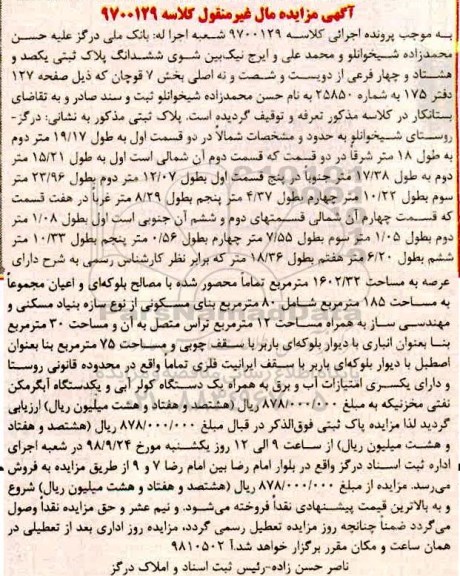 آگهی مزایده مال غیرمنقول کلاسه ۹۷۰۰۱۲۹
به موجب پرونده اجرائی کلاسه ۹۷۰۰۱۲۹ شعبه اجرا له: بانک ملی درگز علیه حسن
محمدزاده شیخوانلو و محمد علی و ایرج نیک‌بین شوی ششدانگ پلاک ثبتی یکصد و
هشتاد و چهار فرعی از دویست و شصت و نه اصلی بخش ۷ قوچان که ذیل صفحه ۱۲۷
دفتر ۱۷۵ به شماره ۲۵۸۵۰ به نام حسن محمدزاده شیخوانلو ثبت و سند صادر و به تقاضای
بستانکار در کلاسه مذکور تعرفه و توقیف گردیده است. پلاک ثبتی مذکور به نشانی: درگز-
روستای شیخوانلو به حدود و مشخصات شمالاً در دو قسمت اول به طول ۱۹/۱۷ متر دوم
به طول ۱۸ متر شرقاً در دو قسمت که قسمت دوم آن شمالی است اول به طول ۱۵/۲۱ متر
دوم به طول ۱۷/۳۸ متر جنوباً در پنج قسمت اول بطول ۱۲/۰۷ متر دوم بطول ۲۳/۹۶ متر
سوم بطول ۱۰/۲۲ متر چهارم بطول ۴/۳۷ متر پنجم بطول ۸/۲۹ متر غرباً در هفت قسمت
که قسمت چهارم آن شمالی قسمتهای دوم و ششم آن جنوبی است اول بطول ۱/۰۸ متر
دوم بطول ۱/۰۵ متر سوم بطول ۷/۵۵ متر چهارم بطول ۰/۵۶ متر پنجم بطول ۱۰/۳۳ متر
ششم بطول ۶/۲۰ متر هفتم بطول ۱۸/۳۶ متر که برابر نظر کارشناس رسمی به شرح دارای
عرصه به مساحت ۱۶۰۲/۳۲ مترمربع تماماً محصور شده با مصالح بلوکه‌ای و اعیان مجموعاً
به مساحت ۱۸۵ مترمربع شامل ۸۰ مترمربع بنای مسکونی از نوع سازه بنیاد مسکنی و
مهندسی ساز به همراه مساحت ۱۲ مترمربع تراس متصل به آن و مساحت ۳۰ مترمربع
بنا بعنوان انباری با دیوار بلوکه‌ای باربر با سقف چوبی و مساحت ۷۵ مترمربع بنا بعنوان
اصطبل با دیوار بلوکه‌ای باربر با سقف ایرانیت فلزی تماما واقع در محدوده قانونی روستا
و دارای یکسری امتیازات آب و برق به همراه یک دستگاه کولر آبی و یکدستگاه آبگرمکن
نفتی مخزنیکه به مبلغ ۸۷۸/۰۰۰/۰۰۰ ریال (هشتصد و هفتاد و هشت میلیون ریال) ارزیابی
گردید لذا مزایده پاک ثبتی فوق‌الذکر در قبال مبلغ ۸۷۸/۰۰۰/۰۰۰ ریال (هشتصد و هفتاد
و هشت میلیون ریال) از ساعت ۹ الی ۱۲ روز یکشنبه مورخ ۹۸/۹/۲۴ در شعبه اجرای
اداره ثبت اسناد درگز واقع در بلوار امام رضا بین امام رضا ۷ و ۹ از طریق مزایده به فروش
می‌رسد. مزایده از مبلغ ۸۷۸/۰۰۰/۰۰۰ ریال (هشتصد و هفتاد و هشت میلیون ریال) شروع
و به بالاترین قیمت پیشنهادی نقداً فروخته می‌شود. و نیم عشر و حق مزایده نقداً وصول
می‌گردد ضمناً چنانچه روز مزایده تعطیل رسمی گردد، مزایده روز اداری بعد از تعطیلی در
همان ساعت و مکان مقرر برگزار خواهد شد.آ ۹۸۱۰۵۰۲
ناصر حسن زاده-رئیس ثبت اسناد و املاک درگز